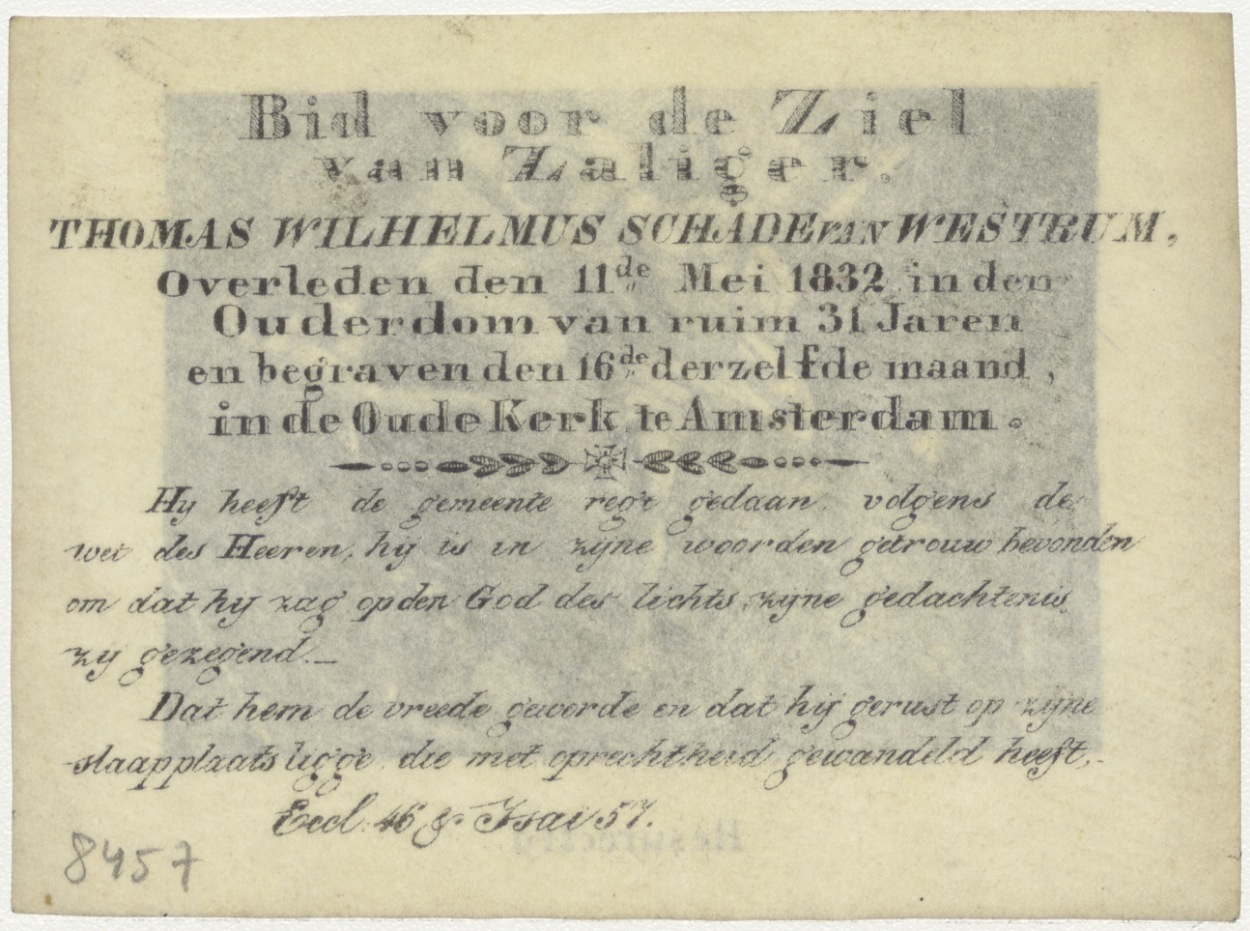 Bid voor de Ziel
van Zaliger.
THOMAS WILHELMUS SCHADE VAN WESTRUM,
Overleden den 11de Mei 1832 in den
Ouderdom van ruim 31 Jaren
en begraven den 16de derzelfde maand,
in de Oude Kerk te Amsterdam.
Hy heeft de gemeente regt gedaan volgens de
wet des Heeren, hij is in zyne woorden getrouw bevonden
om dat hy zag op den God des lichts, zyne gedachtenis
zy gezegend.—
Dat hem de vreede geworde en dat hij gerust op zyne
slaapplaats ligge die met oprechtheid gewandeld heeft.
Eccl. 46 & Isai 57.
8457